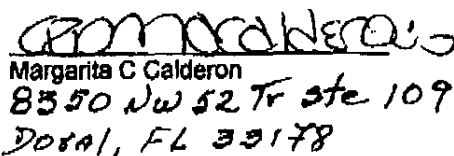 Margarita C Calderon
8350 NW 52 Tr Ste 109
Doral, FL 33178